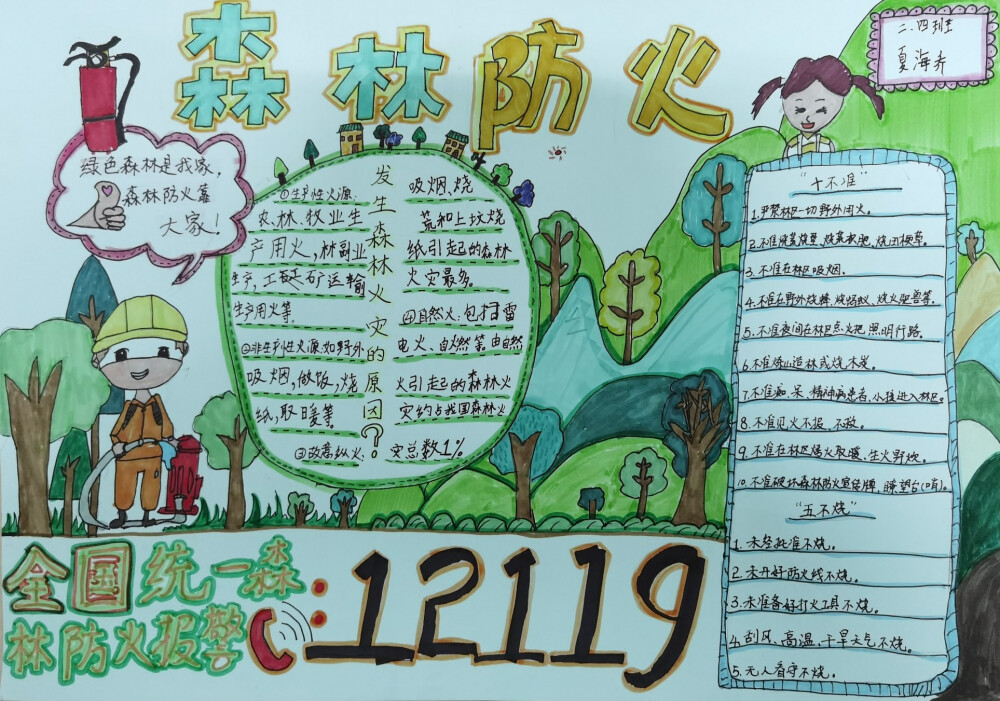 森林防火
二.四班
夏海卉
绿色森林是我家,
森林防火靠
大家!
发生森林火灾的原因?
①生产性火源
农、林、牧业生
产用火,林副业
生产,工矿运输
生产用火等.
②非生产性火源:如野外
吸烟,做饭,烧
纸,取暖等.
③故意纵火:
吸烟、烧
荒和上坟烧
纸引起的森林
火灾最多。
④自然火:包括雷
电火、自燃等.由自然
火引起的森林火
灾约占我国森林火
灾总数1%
"十不准"
1.严禁林区一切野外用火。
3.不准在林区吸烟.
5.不准夜间在林区点火把照明行路.
6.不准炼山造林或烧木炭.
8.不准见火不报、不救。
9.不准在林区烤火取暖、生火野炊。
"五不烧"
1.未经批准不烧。
2.未开好防火线不烧.
3.未准备好打火工具不烧.
4.刮风、高温、干旱天气不烧。
5.无人看守不烧.
全国统一森
林防火报警
:12119